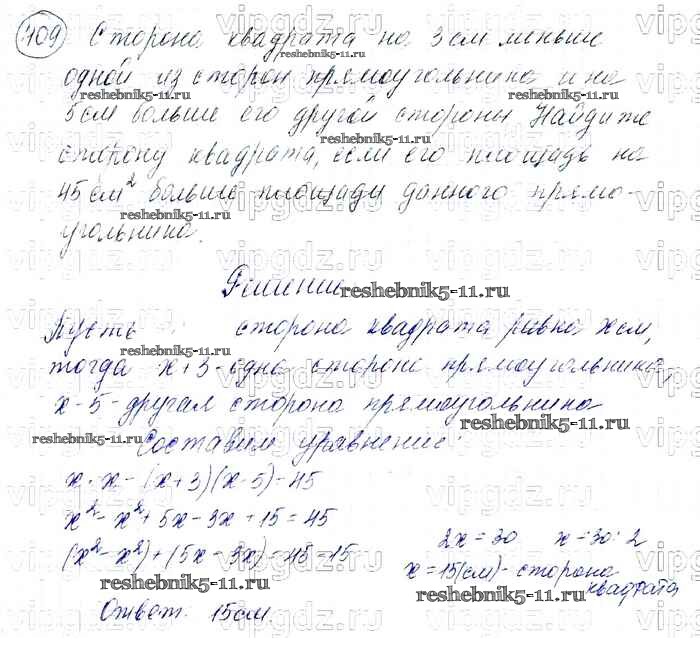 409 Сторона квадрата на 3 см меньше
одной из сторон прямоугольника и на
5 см больше его другой стороны Найдите
сторону квадрата, если его площадь на
45 см² больше площади данного прямо-
угольника.
Решение
Пусть сторона квадрата равна x см,
тогда x+3-одна сторона прямоугольника,
x-5-другая сторона прямоугольника
Составим уравнение:
x·x-(x+3)(x-5)=45
x²-x²+5x-3x+15=45
(x²-x²)+(5x-3x)=45-15
2x=30 x=30:2
x=15(см)-сторона
квадрата
Ответ. 15 см.
vipgdz.ru
reshebnik5-11.ru